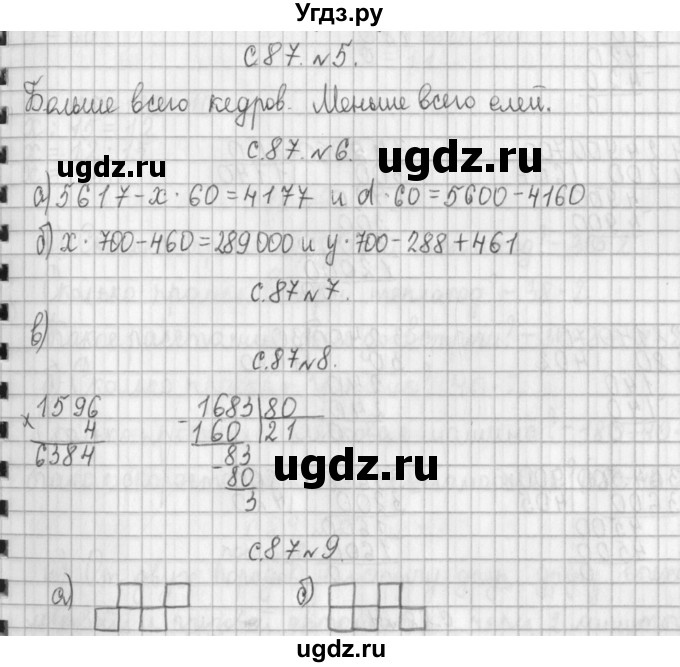 Угдз.ру
с.87. №5.
Больше всего кедров. Меньше всего елей.
с.87. №6.
ugdz.ru ugdz.ru
а) 5617-x·60=4177 и d·60=5600-4160
б) x·700-460=289000 и y·700-288+461
с.87 №7.
в)
с.87 №8.
1596 1683|80
x 4 -160 |21
6384 83
-80
3
ugdz.ru ugdz.ru
с.87 №9.
а) б)
ugdz.ru ugdz.ru
ugdz.ru